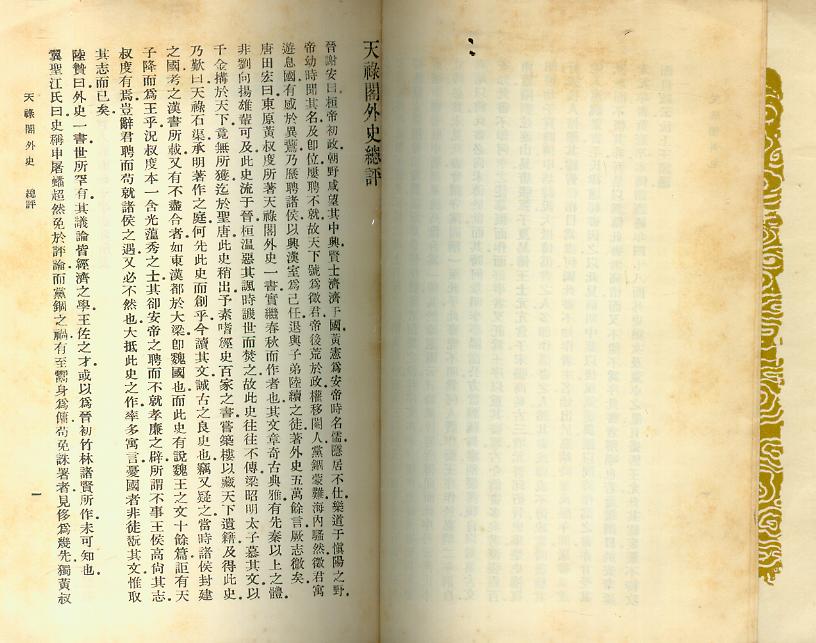 天祿閣外史總評
晉謝安曰桓帝初政朝野咸望其中興賢士濟濟于國黃憲爲安帝時名儒隱居不仕樂道于愼陽之野
帝幼時聞其名及卽位屢聘不就故天下號爲徵君帝後荒於政權移閹人黨錮蒙難海內騷然徵君寓
遊息國有感於異鷟乃歷聘諸侯以興漢室爲己任退與子弟陸續之徒著外史五萬餘言厥志徵矣
唐田宏曰東原黃叔度所著天祿閣外史一書實繼春秋而作者也其文章奇古典雅有先秦以上之體
非劉向揚雄輩可及此史流于晉桓溫惡其諷時譏世而焚之故此史往往不傳梁昭明太子慕其文以
千金搆於天下竟無所獲迄於聖唐此史稍出予素嗜經史百家之書嘗築樓以藏天下遺籍及得此史
乃歎曰天祿石渠承明著作之庭何先此史而創乎今讀其文誠古之良史也竊又疑之當時諸侯封建
之國考之漢書所載又有不盡合者如東漢都於大梁卽魏國也而此史有說魏王之文十餘篇詎有天
子降而爲王乎況叔度本一含光蘊秀之士其卻安帝之聘而不就孝廉之辟所謂不事王侯高尙其志
叔度有焉豈辭君聘而苟就諸侯之遇又必不然也大抵此史之作率多寓言憂國者非徒翫其文惟取
其志而已矣
陸贄曰外史一書世所罕有其議論皆經濟之學王佐之才或以爲晉初竹林諸賢所作未可知也
翼聖江氏曰史稱申屠蟠超然免於評論而黨錮之禍有至鬻身爲傭苟免誅署者見侈爲幾先獨黃叔
天祿閣外史 總評
一